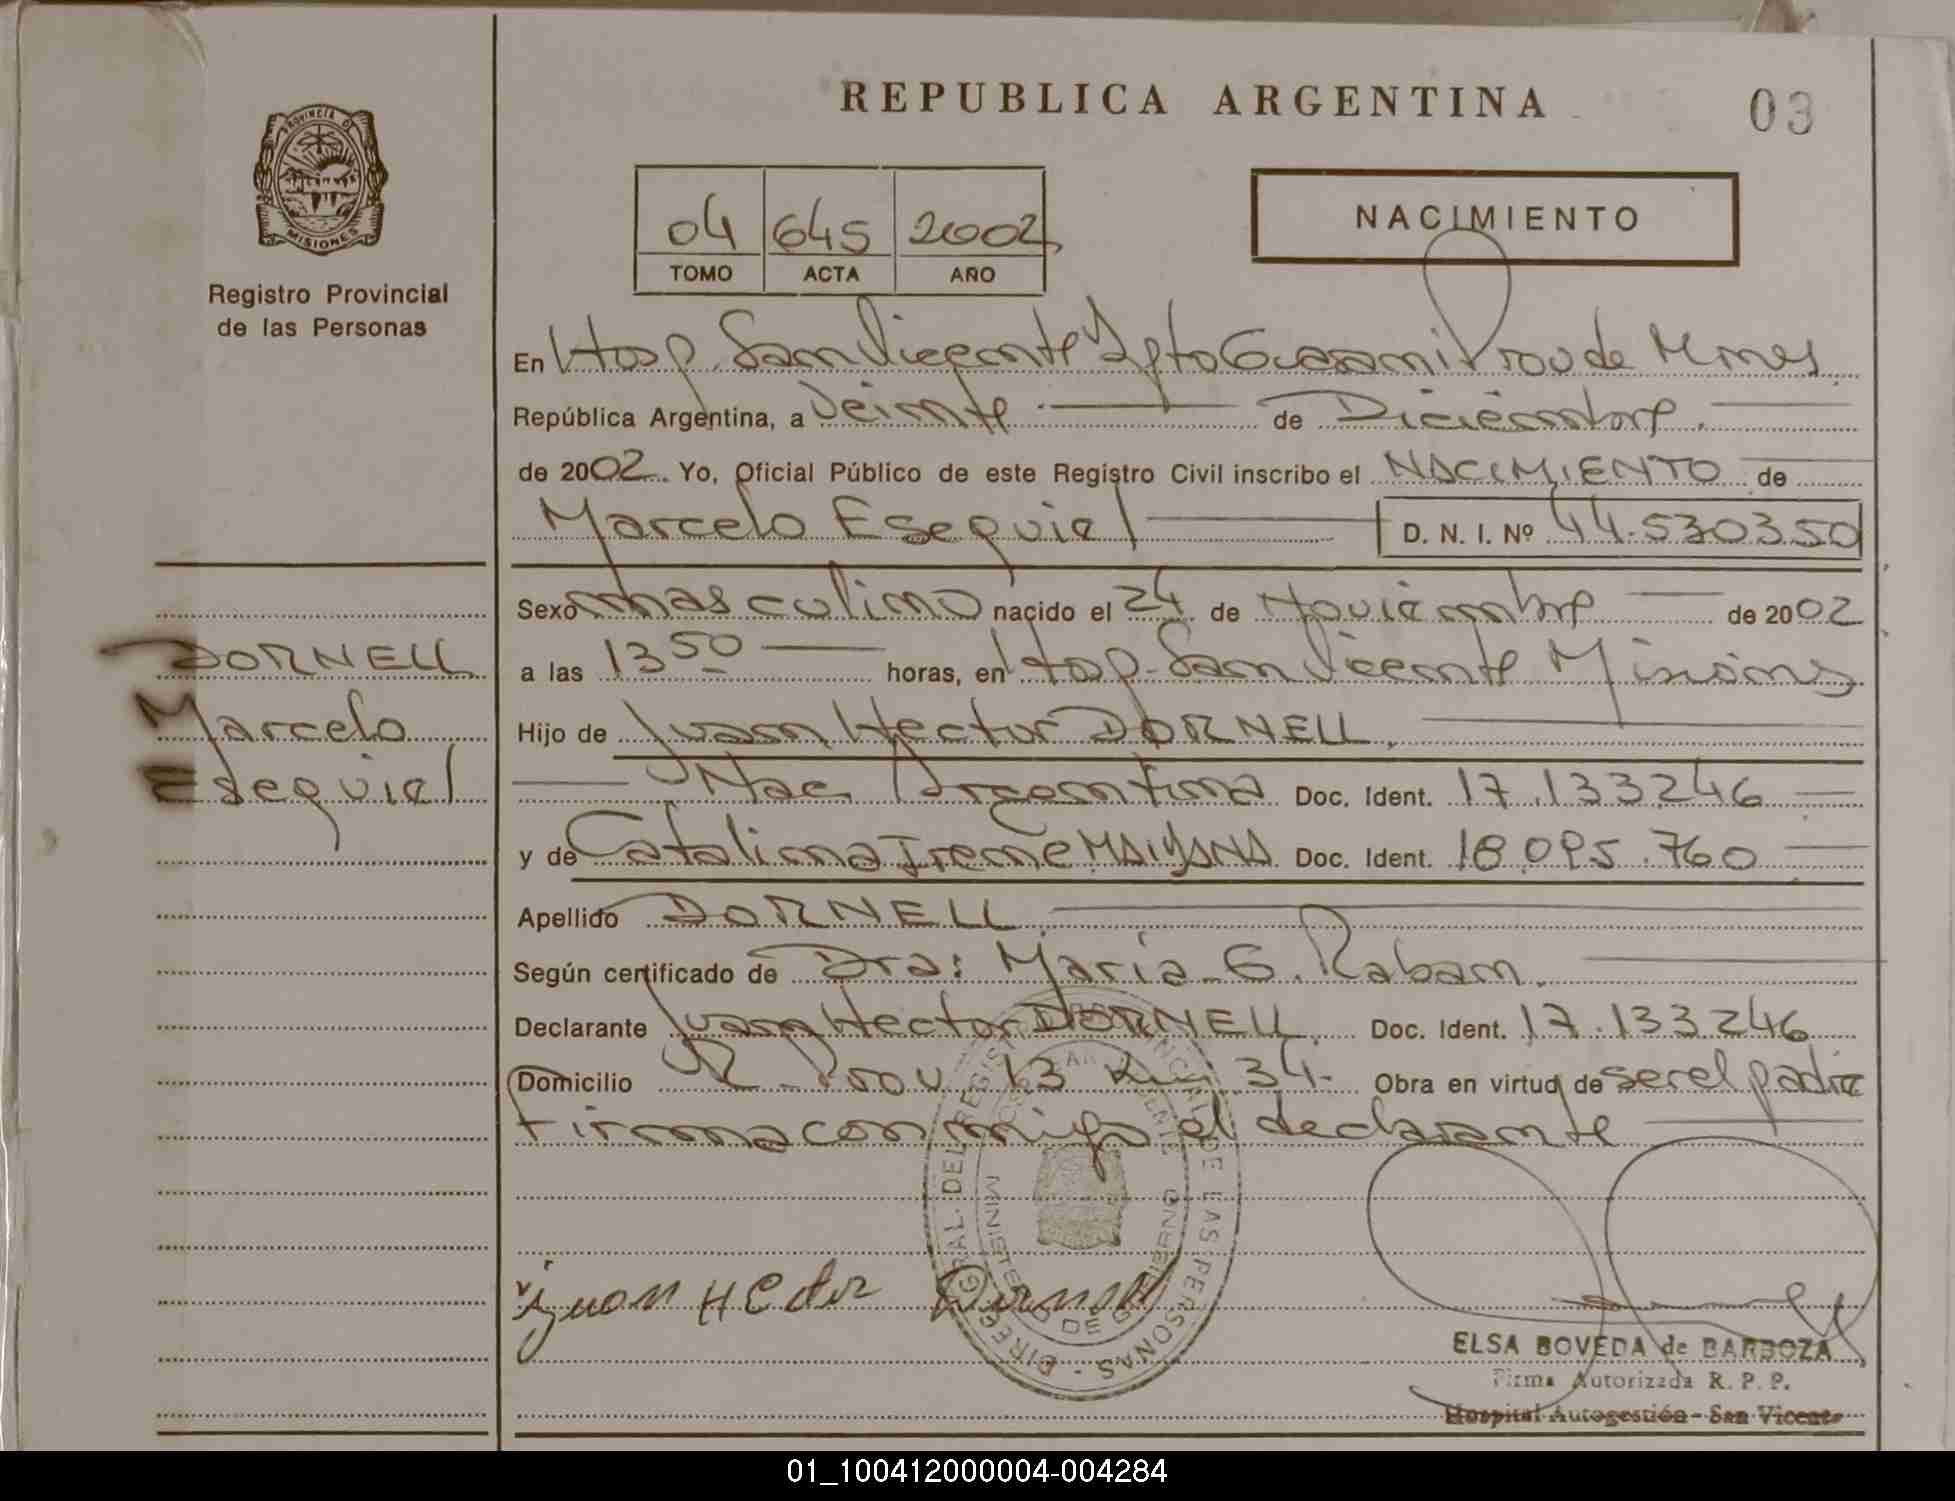 PROVINCIA DE
MISIONES
Registro Provincial
de las Personas
DORNELL
Marcelo
Esequiel
REPUBLICA ARGENTINA
03
04 645 2002
TOMO ACTA AÑO
NACIMIENTO
En Hosp. San Vicente Dpto Guarani Prov de Mnes
República Argentina, a Veinte de Diciembre
de 2002. Yo, Oficial Público de este Registro Civil inscribo el NACIMIENTO de
Marcelo Esequiel D. N. I. Nº 44.530350
Sexo masculino nacido el 24 de Noviembre de 2002
a las 13 50 horas, en Hosp. San Vicente Misiones
Hijo de Juan Hector DORNELL.
Nac. Argentina Doc. Ident. 17.133246
y de Catalina Irene Doc. Ident. 18.095.760
Apellido DORNELL
Según certificado de Dra: Maria G. Raban.
Declarante Juan Hector DORNELL Doc. Ident. 17.133246
Domicilio R. Prov. 13 Km 34. Obra en virtud de ser el padre
Firma conmigo el declarante
Juan Hector Dornell
DIREC. GRAL. DEL REGISTRO PROVINCIAL DE LAS PERSONAS
MINISTERIO DE GOBIERNO
ELSA BOVEDA de BARBOZA
Firma Autorizada R. P. P.
Hospital Autogestión - San Vicente
01_100412000004-004284